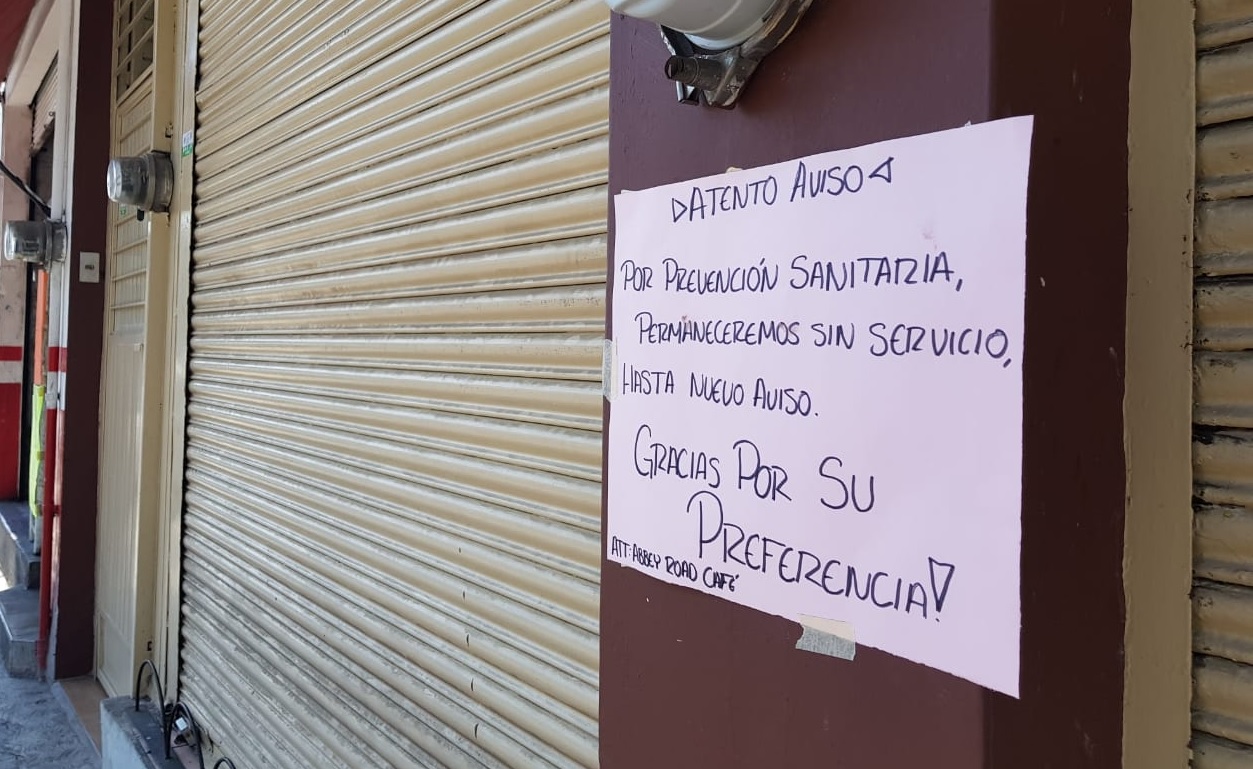 ATENTO AVISO
POR PREVENCIÓN SANITARIA,
PERMANECEREMOS SIN SERVICIO,
HASTA NUEVO AVISO.
GRACIAS POR SU
PREFERENCIA!
ATT: ABBEY ROAD CAFÉ